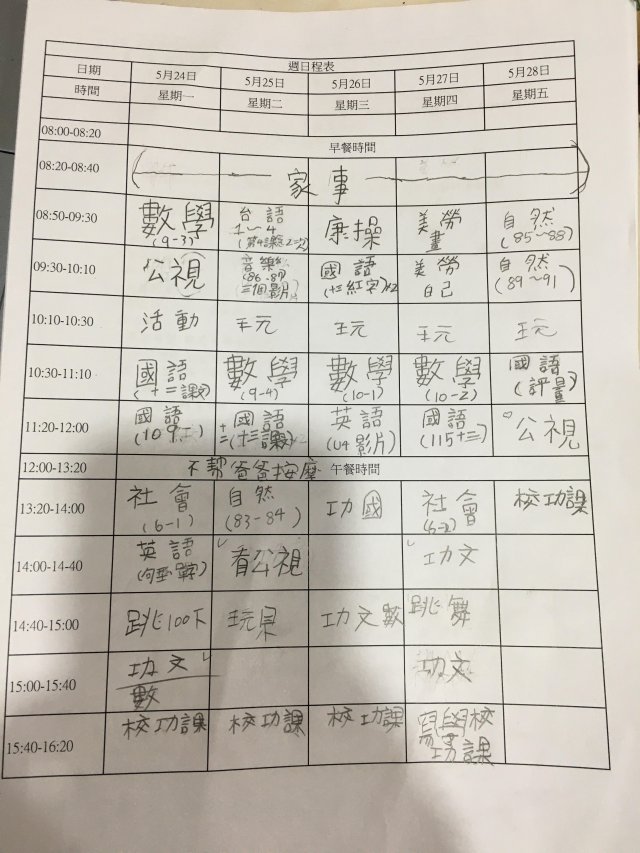 週日程表
日期 5月24日 5月25日 5月26日 5月27日 5月28日
時間 星期一 星期二 星期三 星期四 星期五
08:00-08:20 早餐時間
08:20-08:40 家事
08:50-09:30 數學 台語 康操 美勞 自然
(9-3) 1~4 畫 (85~88)
(第4課念2次)
09:30-10:10 公視 音樂 國語 美勞 自然
(86-87) (十三紅字)×2 自己 (89~91)
三個影片
10:10-10:30 活動 玩 玩 玩 玩
10:30-11:10 國語 數學 數學 數學 國語
(十二課文) (9-4) (10-1) (10-2) (評量)
11:20-12:00 國語 國語 英語 國語 公視
(109 (十三課) (U4影片) (115十三)
12:00-13:20 不幫爸爸按摩 午餐時間
13:20-14:00 社會 自然 功國 社會 校功課
(6-1) (83-84)
14:00-14-40 英語 看公視 功文
14:40-15:00 跳100下 玩 功文數 跳舞
15:00-15:40 功文 功文
數
15:40-16:20 校功課 校功課 校功課 寫學校
功課